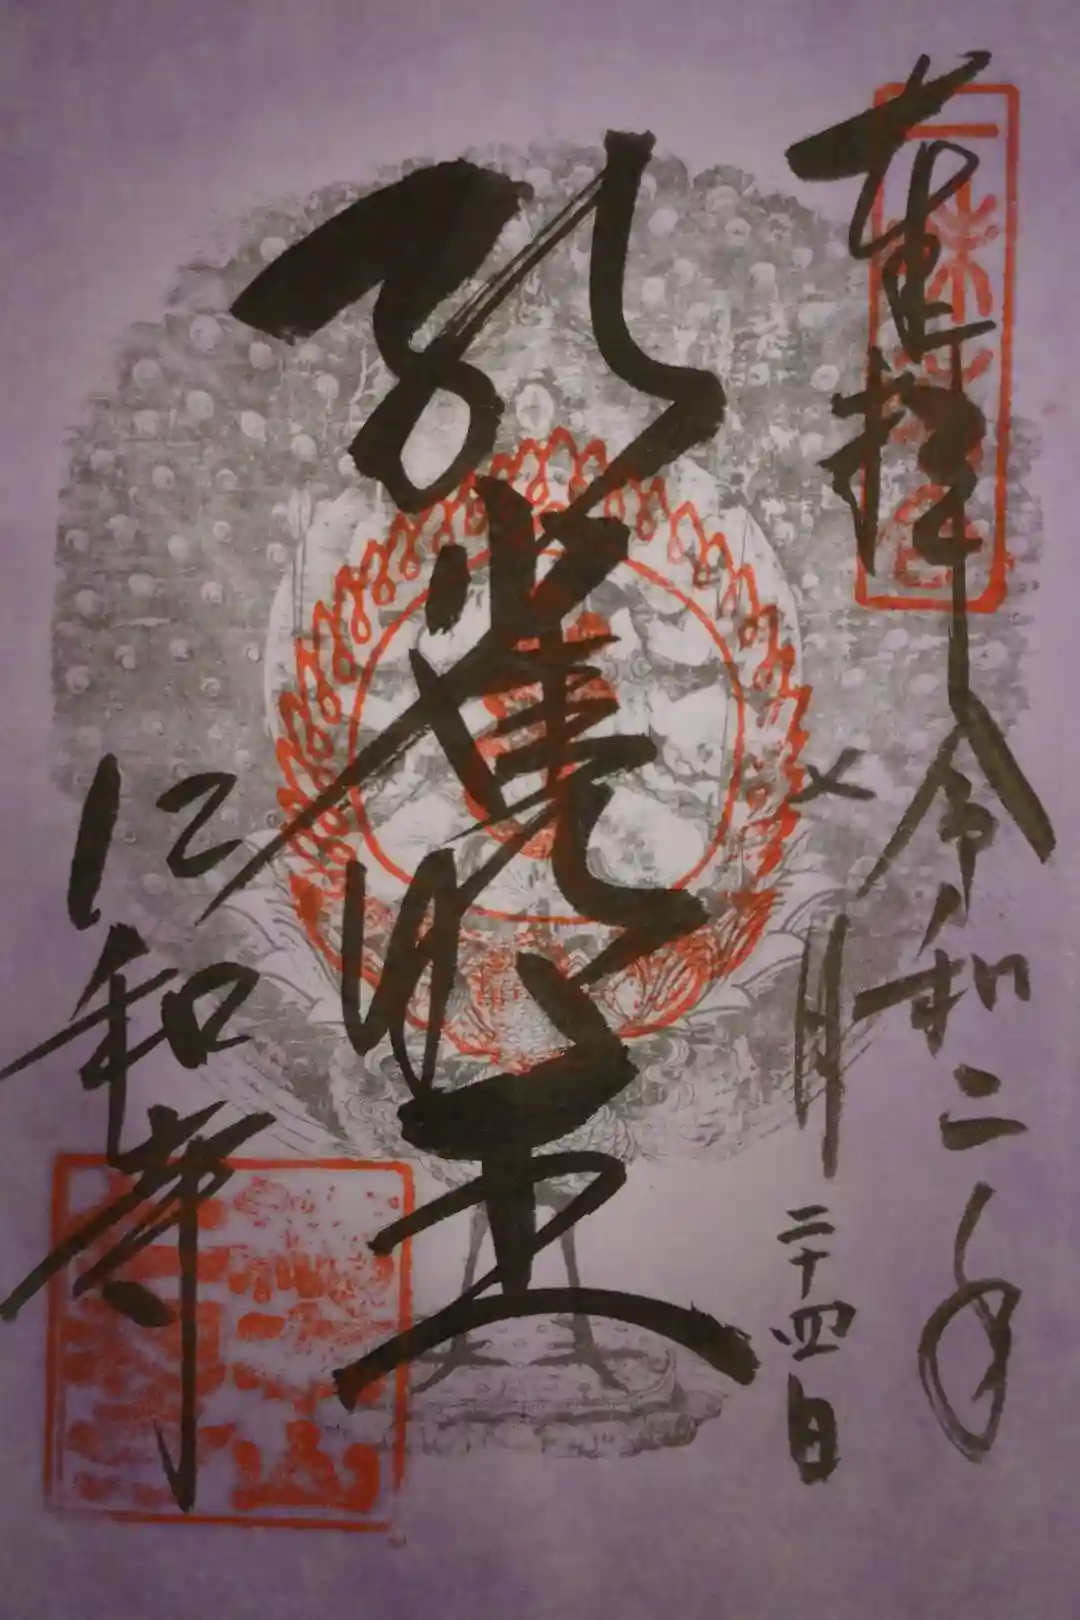 奉拝
令和二年
七月
二十四日
孔雀明王
仁和寺